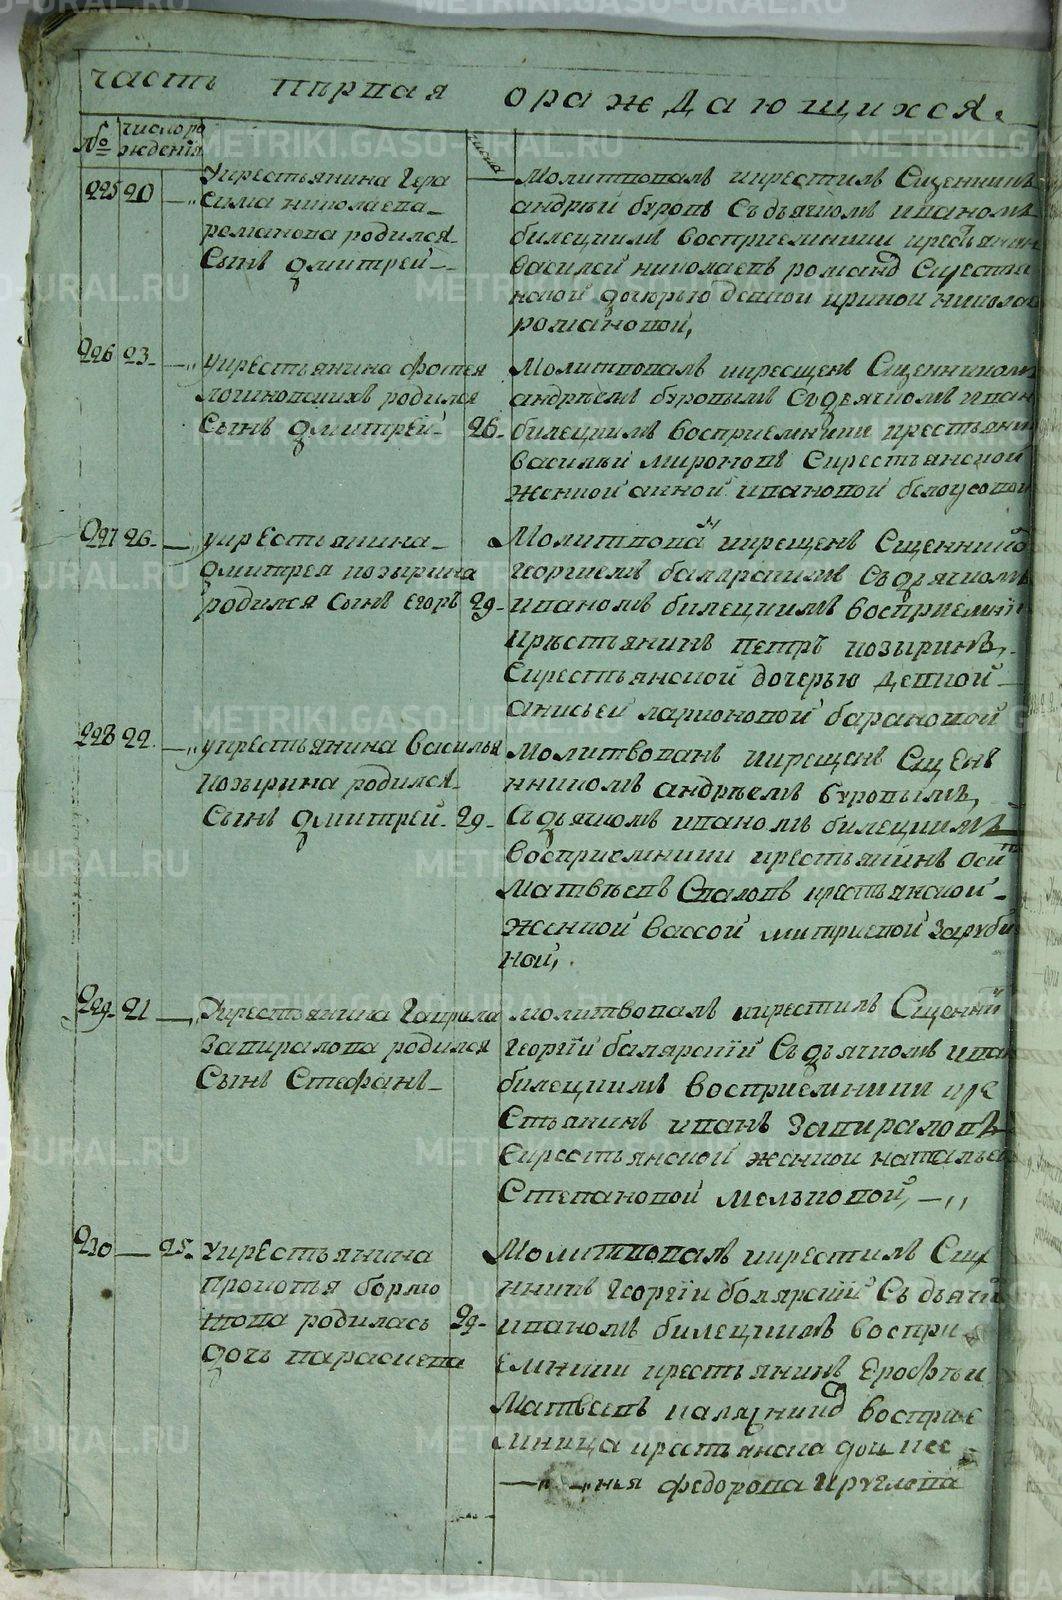 часть пѣрвая ораждающихся.
№ число ро
ждения числа
225 20 — Укрестьянина Гера
сима николаева
романова родился
Сынъ дмитрей —
Молитвовалъ икрестилъ Сщенникъ
андрѣй буровъ Съдьячкомъ иваномъ
билецкимъ восприемники крестьянинъ
василей николаевъ романо Скрестья
нской дочерью девкой ириной никола
романовой,
226 23 — укрестьянина фотея
логиновскихъ родился
Сынъ дмитрей 26.
Молитвовалъ икрещенъ Сщенникомъ
андрѣемъ буровымъ Съдеячкомъ иван
билецкимъ восприемники крестьянин
василѣй мироновъ Скрестьянской
женкой анной ивановой белоусовой
227 26 — укрестьянина
дмитрея козырина
родился Сынъ Егоръ 29
Молитвова икрещенъ Сщенник
георгиемъ балярскимъ Съдьячкомъ
иваномъ билецкимъ восприемни
крѣстьянинъ петръ козыринъ,
Скрестьянской дочерью девкой
анисьей ларионовой барановой
228 22 — укрестьянина василья
козырина родился
Сынъ дмитрей 29
молитвованъ икрещенъ Сщенъ
нникомъ андрѣемъ буровымъ,
Съдьячкомъ иваномъ билецкимъ
восприемники крестьянинъ оси
матвѣевъ Спаловъ крестьянской
женкой вассой митриевой заруби
ной,
229 21 — Укрестьянина гаврила
запиралова родился
Сынъ Стефанъ —
молитвовалъ икрестилъ Сщенни
георгій балярскій Съдьячкомъ иван
билецкимъ восприемники кре
Стьянинъ иванъ запираловъ
Скрестьянской женкой натальей
Степановой мельковой, —
230 — 25. укрестьянина
прокопья бормо
това родилась 29
дочь парасковя
Молитвовалъ икрестилъ Сще
нникъ георгій болярскій Съдьячко
иваномъ билецкимъ воспри
емники крестьянинъ ерофѣи
Матвеевъ калякин восприе
мница крестьянска дочь
федорова круглова